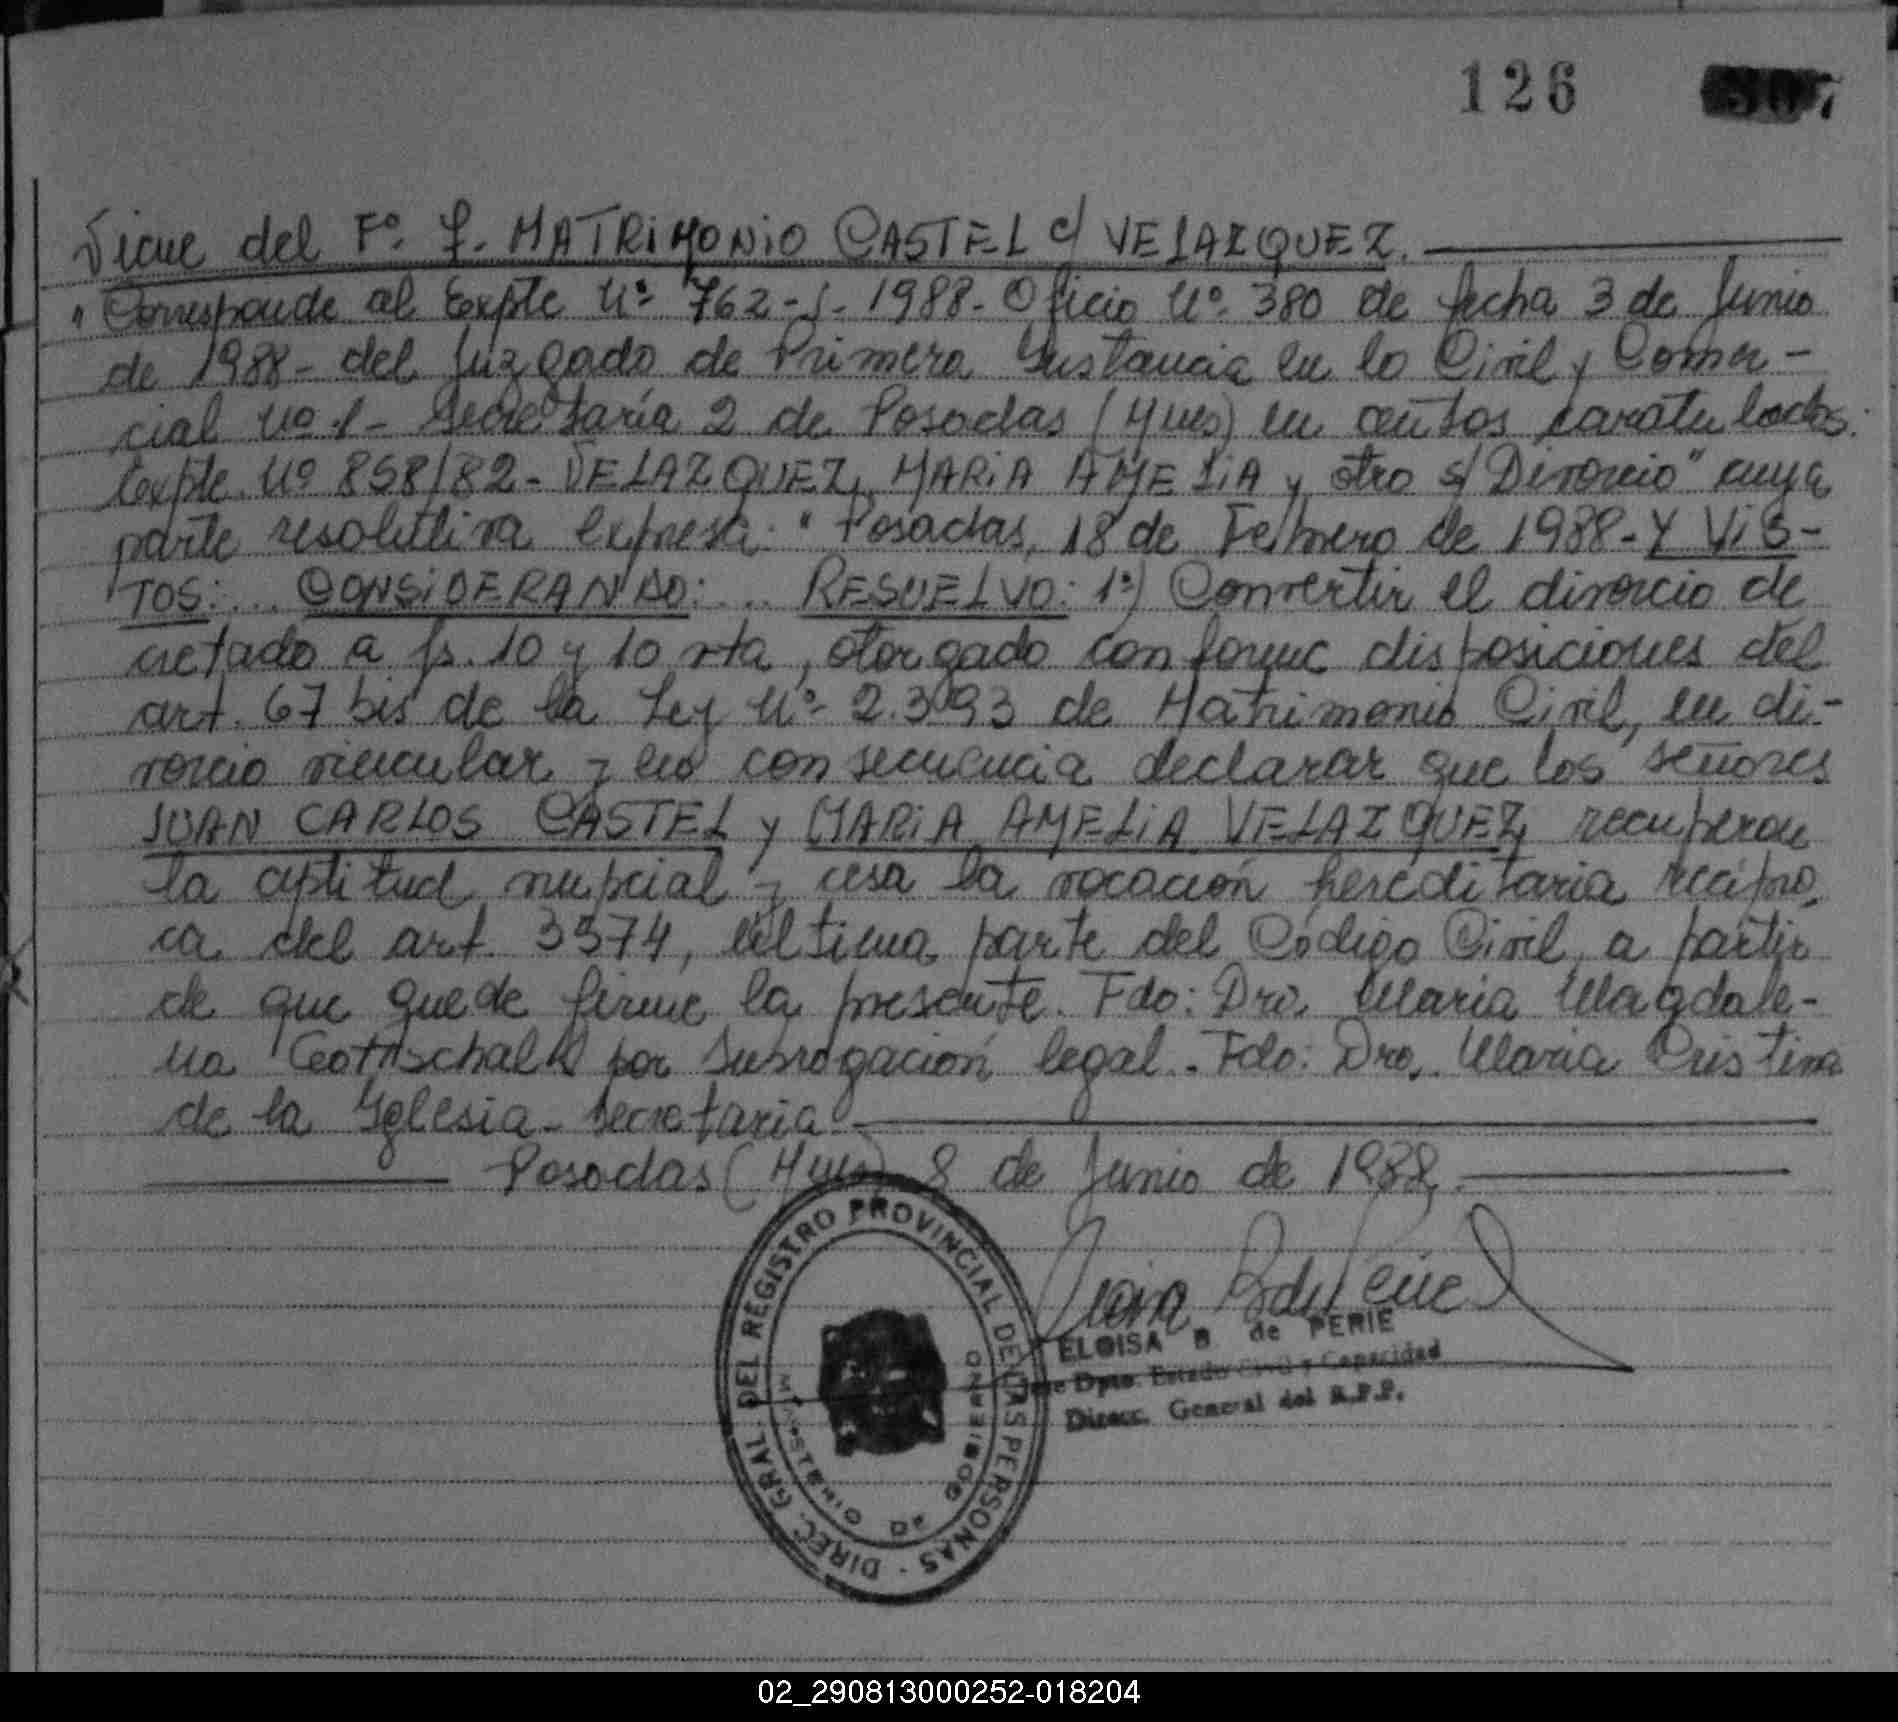 126 307
Viene del Fº. f. MATRIMONIO CASTEL c/ VELAZQUEZ.
"Corresponde al Expte Nº 762-J-1988- Oficio Nº. 380 de fecha 3 de Junio
de 1988- del Juzgado de Primera Instancia en lo Civil y Comer-
cial Nº 1- Secretaría 2 de Posadas (Mnes) en autos caratulados:
Expte. Nº 858/82- VELAZQUEZ, MARIA AMELIA y otro s/ Divorcio" cuya
parte resolutiva expresa: "Posadas, 18 de Febrero de 1988- Y VIS-
TOS: ... CONSIDERANDO: ... RESUELVO: 1º) Convertir el divorcio de
cretado a fs. 10 y 10 vta, otorgado conforme disposiciones del
art. 67 bis de la Ley Nº 2.393 de Matrimonio Civil, en di-
vorcio vincular y en consecuencia declarar que los señores
JUAN CARLOS CASTEL y MARIA AMELIA VELAZQUEZ, recuperan
la aptitud nupcial y cesa la vocación hereditaria recípro,
ca del art. 3574, última parte del Código Civil, a partir
de que quede firme la presente. Fdo: Dra. Maria Magdale-
na Gottschalk por subrogación legal. Fdo: Dra. Maria Cristina
de la Iglesia- Secretaria.
Posadas (Mnes) 8 de Junio de 1988.
DIREC. GRAL. DEL REGISTRO PROVINCIAL DE LAS PERSONAS
MINISTERIO DE GOBIERNO
ELOISA B. de PERIE
Jefe Dpto. Estado Civil y Capacidad
Direcc. General del R.P.P.
02_290813000252-018204